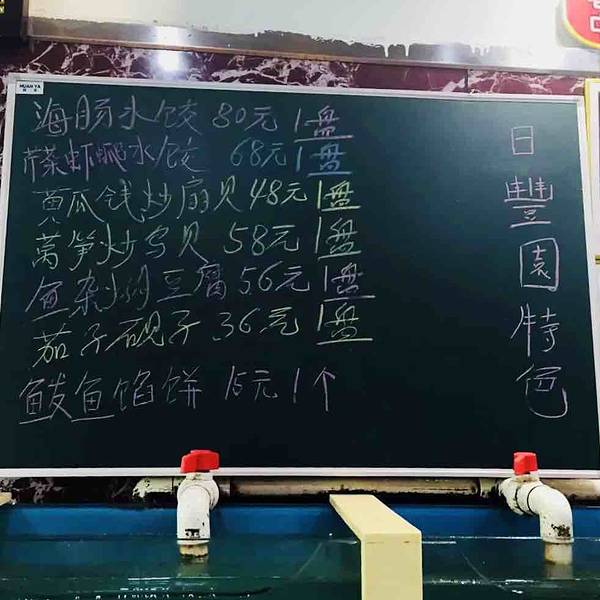 HUAH YA
海肠水饺 80元 1盘
芹菜虾爬水饺 68元 1盘
黄瓜钱炒扇贝 48元 1盘
莴笋炒鸟贝 58元 1盘
鱼杂炖豆腐 56元 1盘
茄子砚子 36元 1盘
鲅鱼馅饼 15元 1个
日豐園特色